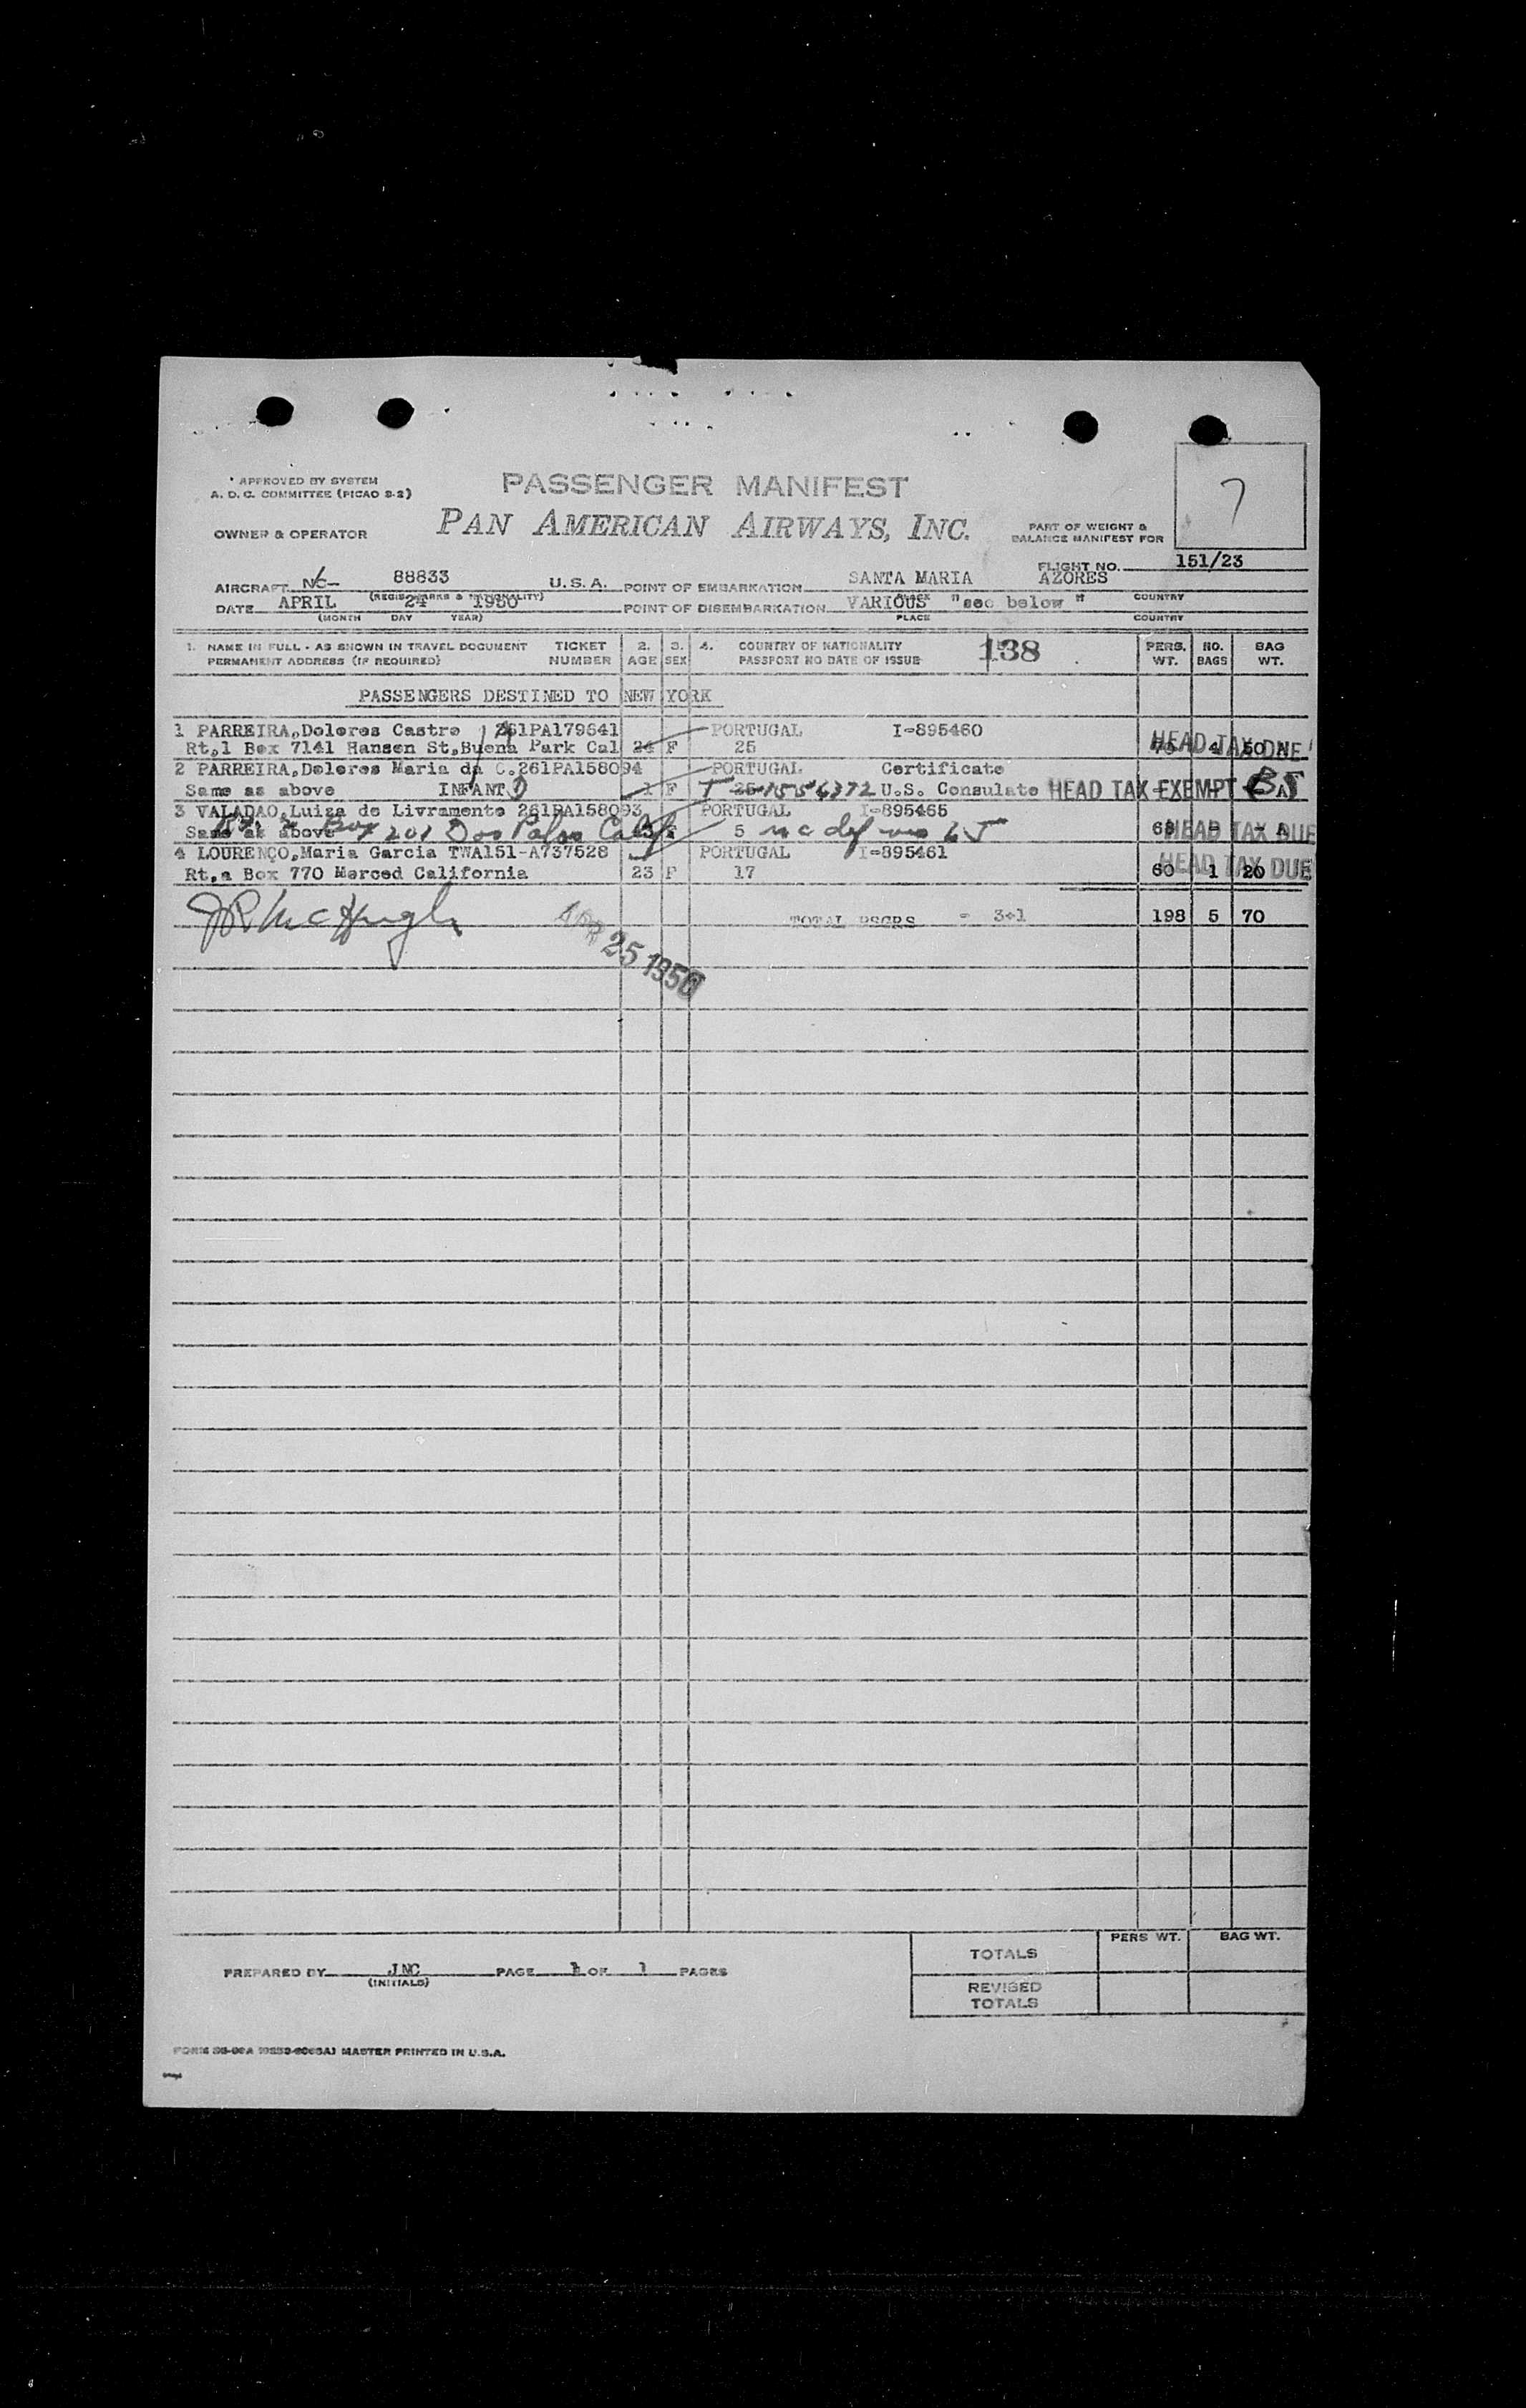 APPROVED BY SYSTEM
A. D. C. COMMITTEE (PICAO S-2)
PASSENGER MANIFEST
7
OWNER & OPERATOR
PAN AMERICAN AIRWAYS, INC.
PART OF WEIGHT &
BALANCE MANIFEST FOR
FLIGHT NO. 151/23
AIRCRAFT NC- 88833 U.S.A. POINT OF EMBARKATION SANTA MARIA AZORES
(REGIS. MARKS & NATIONALITY) PLACE COUNTRY
DATE APRIL 24 1950 POINT OF DISEMBARKATION VARIOUS "see below"
(MONTH DAY YEAR) PLACE COUNTRY
1. NAME IN FULL - AS SHOWN IN TRAVEL DOCUMENT TICKET 2. 3. 4. COUNTRY OF NATIONALITY 138 PERS. NO. BAG
PERMANENT ADDRESS (IF REQUIRED) NUMBER AGE SEX PASSPORT NO DATE OF ISSUE WT. BAGS WT.
PASSENGERS DESTINED TO NEW YORK
1 PARREIRA,Dolores Castro 261PA179641 PORTUGAL I-895460
Rt.1 Box 7141 Hansen St.Buena Park Cal 24 F 25 70 4 50 HEAD TAX DUE
2 PARREIRA,Dolores Maria da C.261PA158094 PORTUGAL Certificate
Same as above INFANT 1 F U.S. Consulate HEAD TAX EXEMPT
3 VALADAO,Luiza do Livramento 261PA158093 PORTUGAL I-895465
Same as above Box 201 Dos Palos Calif. F 5 68 HEAD TAX DUE
4 LOURENÇO,Maria Garcia TWA151-A737528 PORTUGAL I-895461
Rt.a Box 770 Merced California 23 F 17 60 1 20 HEAD TAX DUE
JR McHugh
APR 25 1950
TOTAL PSGRS - 3+1 198 5 70
PREPARED BY JNC PAGE 1 OF 1 PAGES
(INITIALS)
PERS WT. BAG WT.
TOTALS
REVISED
TOTALS
MASTER PRINTED IN U.S.A.